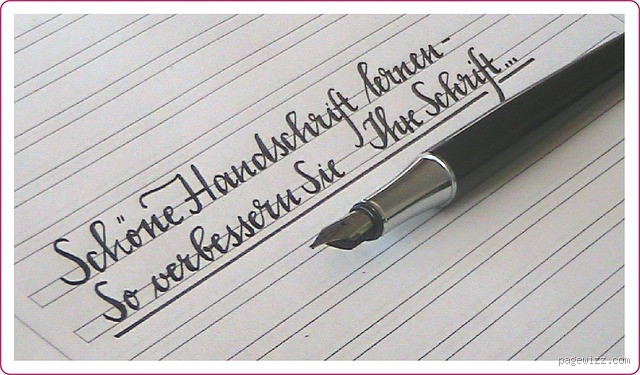 Schöne Handschrift lernen-
So verbessern Sie Ihre Schrift...
pagewizz.com